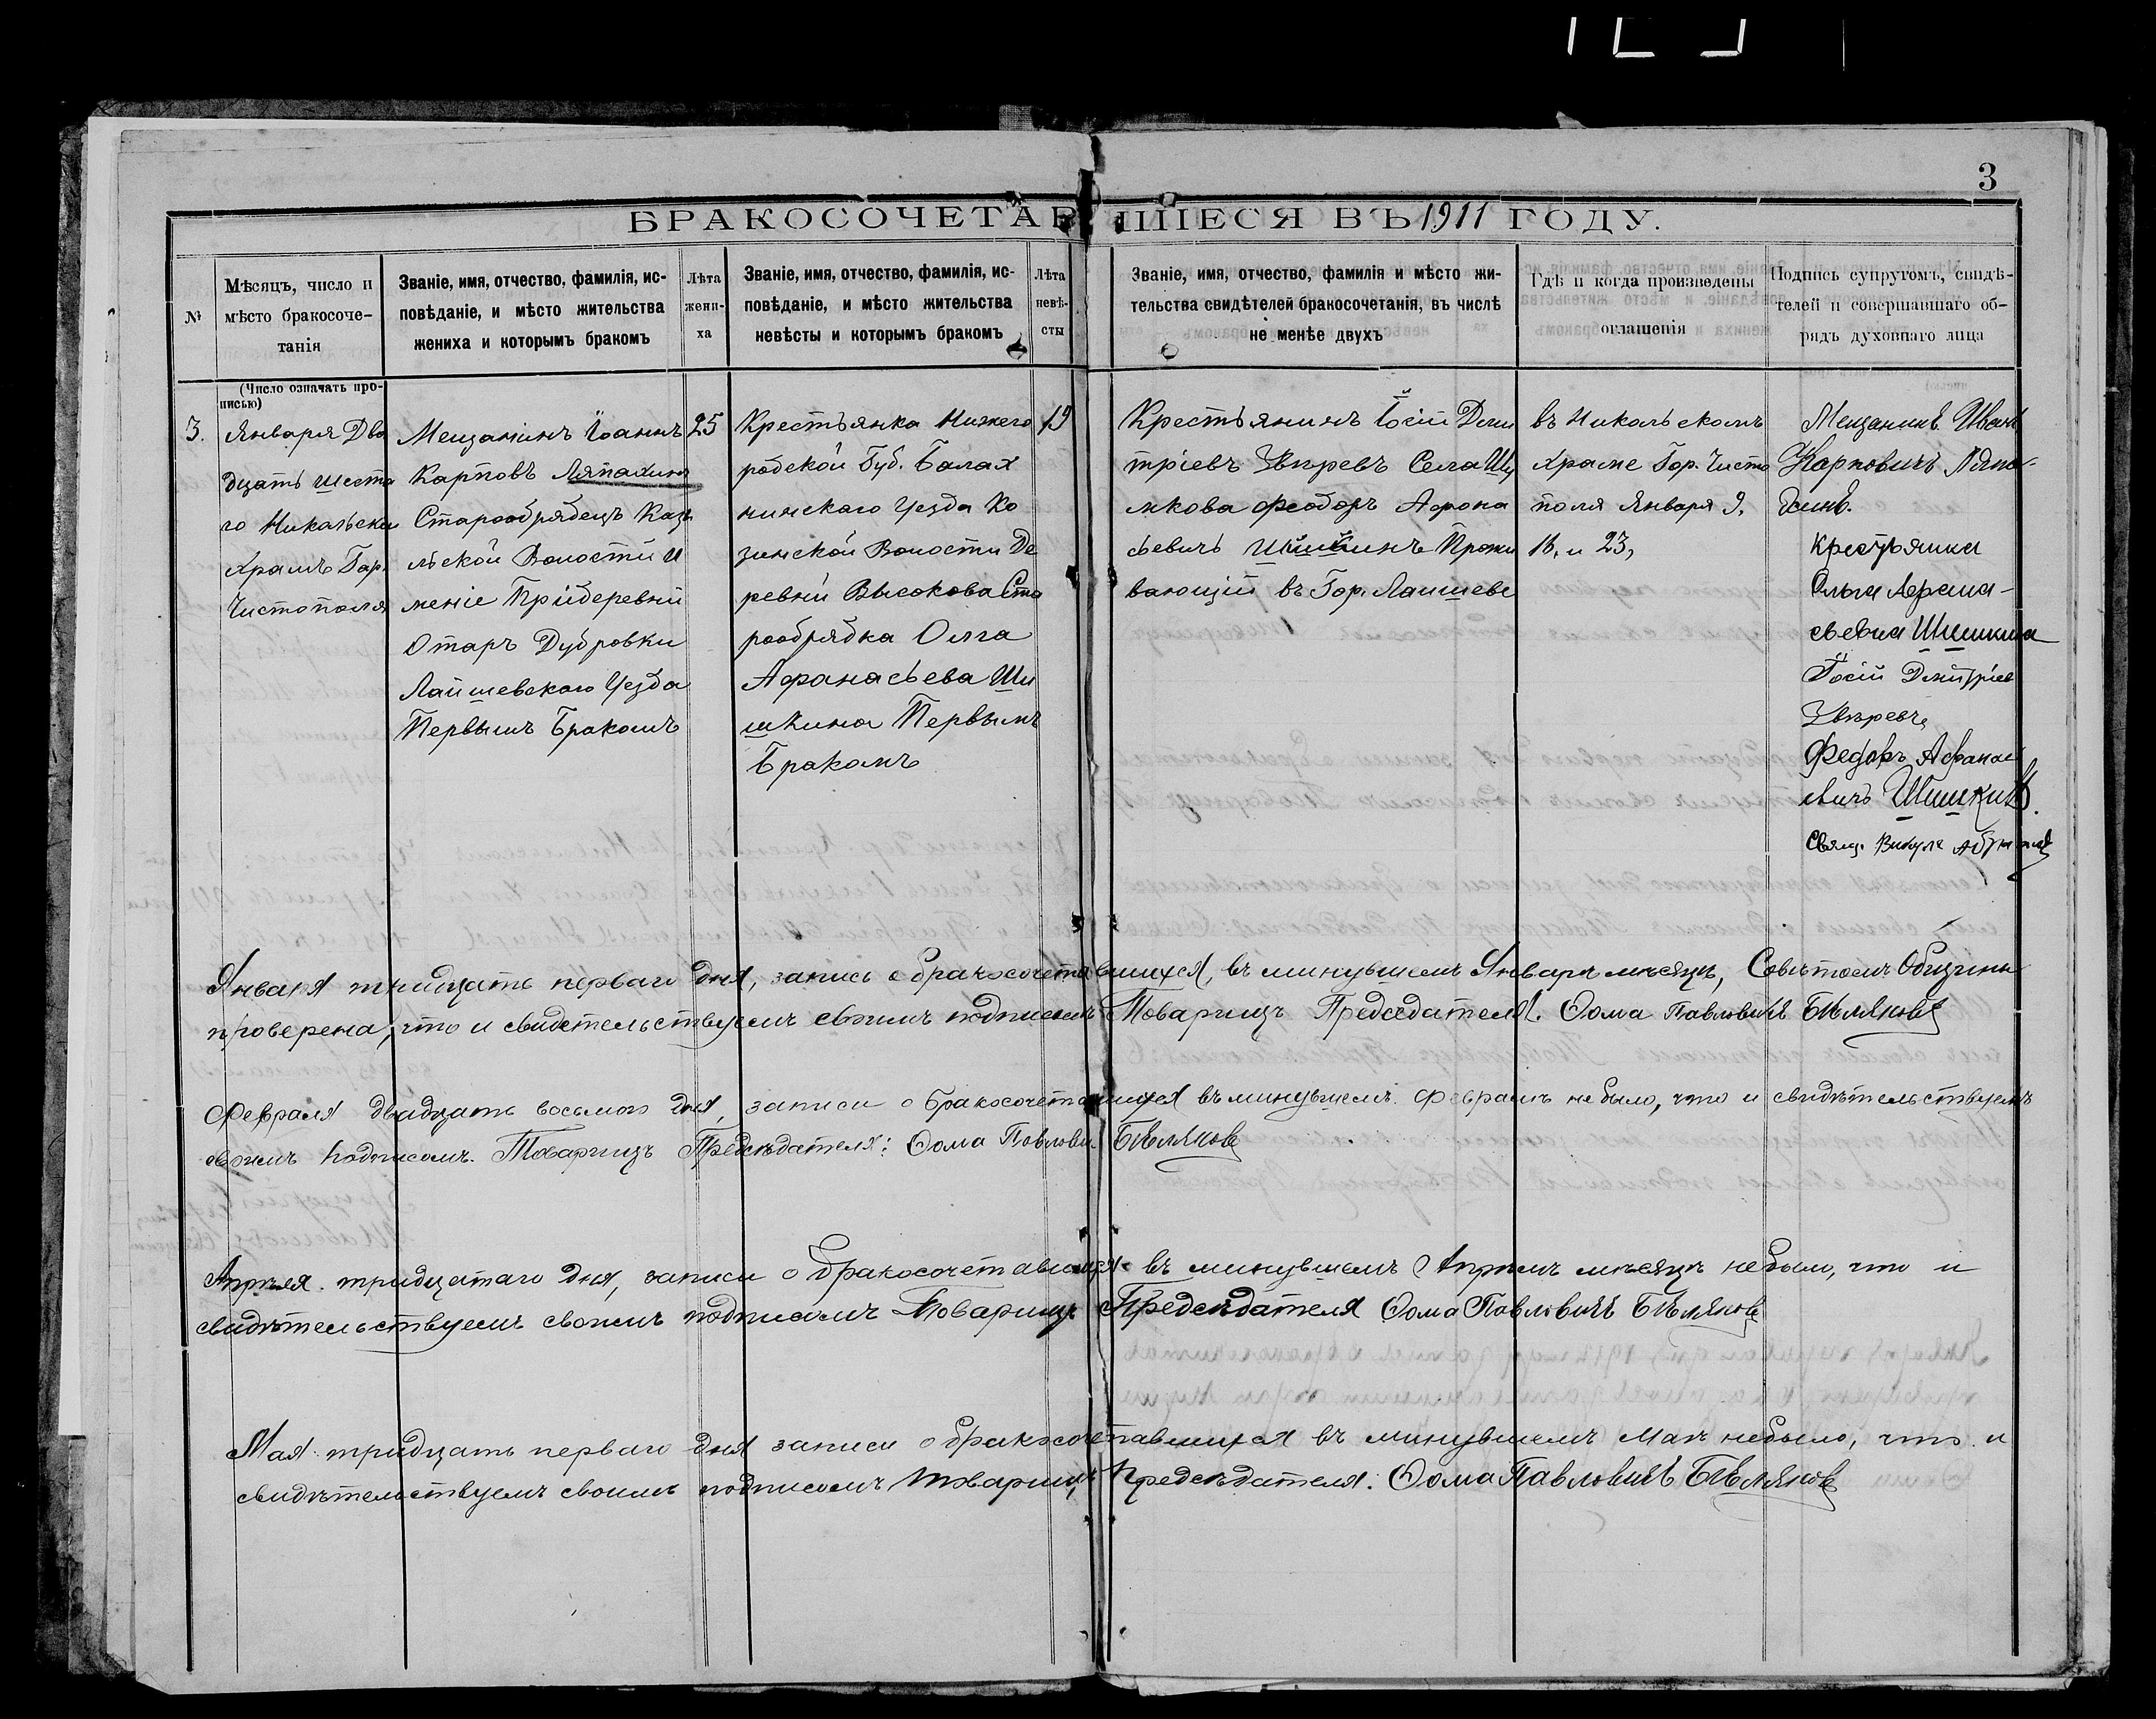 3
БРАКОСОЧЕТАВШІЕСЯ ВЪ 1911 ГОДУ.
№
Мѣсяцъ, число и
мѣсто бракосоче-
танія
Званіе, имя, отчество, фамилія, ис-
повѣданіе, и мѣсто жительства
жениха и которымъ бракомъ
Лѣта
жени-
ха
Званіе, имя, отчество, фамилія, ис-
повѣданіе, и мѣсто жительства
невѣсты и которымъ бракомъ
Лѣта
невѣ-
сты
Званіе, имя, отчество, фамилія и мѣсто жи-
тельства свидѣтелей бракосочетанія, въ числѣ
не менѣе двухъ
Гдѣ и когда произведены
оглашенія
Подпись супругомъ, свидѣ-
телей и совершавшаго об-
рядъ духовнаго лица
(Число означать про-
писью)
3.
Января Два
дцать шеста
го Никольски
Храмъ Гор.
Чистополя
Мещанинъ Іоаннъ
Карповъ Ляпахинъ
Старообрядецъ Казы
льской Волости И
меніе Прійдеревнй
Отаръ Дубровки
Лаишевскаго Уезда
Первымъ Бракомъ
25
Крестьянка Нижего
родской Губ. Балах
нинскаго Уезда Ко
зинской Волости Де
ревни Высокова Ста
рообрядка Олга
Афанасьева Ши
шкина Первымъ
Бракомъ
19
Крестьянинъ Іосій Дми
тріевъ Звѣревъ Села Шу
мкова Феодоръ Афона
сьевичъ Шишкинъ Прожи
вающій въ Гор. Лаишеве
въ Никольскомъ
Храме Гор. Чисто
поля Января 9,
16, и 23,
Мещанинъ Иванъ
Карповичъ Ляпа-
хинъ.
Крестьянка
Ольга Афана-
сьевна Шишкина
Іосій Дмитріев
Звѣревъ
Федоръ Афанас
евичъ Шишкинъ.
Свящ. Викула
Января тридцать перваго дня, запись о бракосочетавшихся, въ минувшемъ Январѣ мѣсяцѣ, Совѣтомъ Общины
проверена, что и свидетельствуемъ своимъ подписомъ Товарищъ Предсѣдателя. Ѳома Павловичъ Бѣляковъ
Февраля двадцать восьмого дня, записи о бракосочетавшихся въ минувшемъ Февралѣ небыло, что и свидѣтельствуемъ
своимъ подписомъ. Товарищъ Предсѣдателя: Ѳома Павлови Бѣляковъ
Апрѣля тридцатаго дня, записи о бракосочетавшихся въ минувшемъ Апрѣлѣ мѣсяцѣ небыло, что и
свидѣтельствуемъ своимъ подписомъ Товарищъ Предсѣдателя Ѳома Павловичъ Бѣляковъ
Мая тридцать перваго дня записи о бракосочетавшихся въ минувшемъ Маѣ небыло, что и
свидѣтельствуемъ своимъ подписомъ Товарищъ Предсѣдателя: Ѳома Павловичъ Бѣляковъ